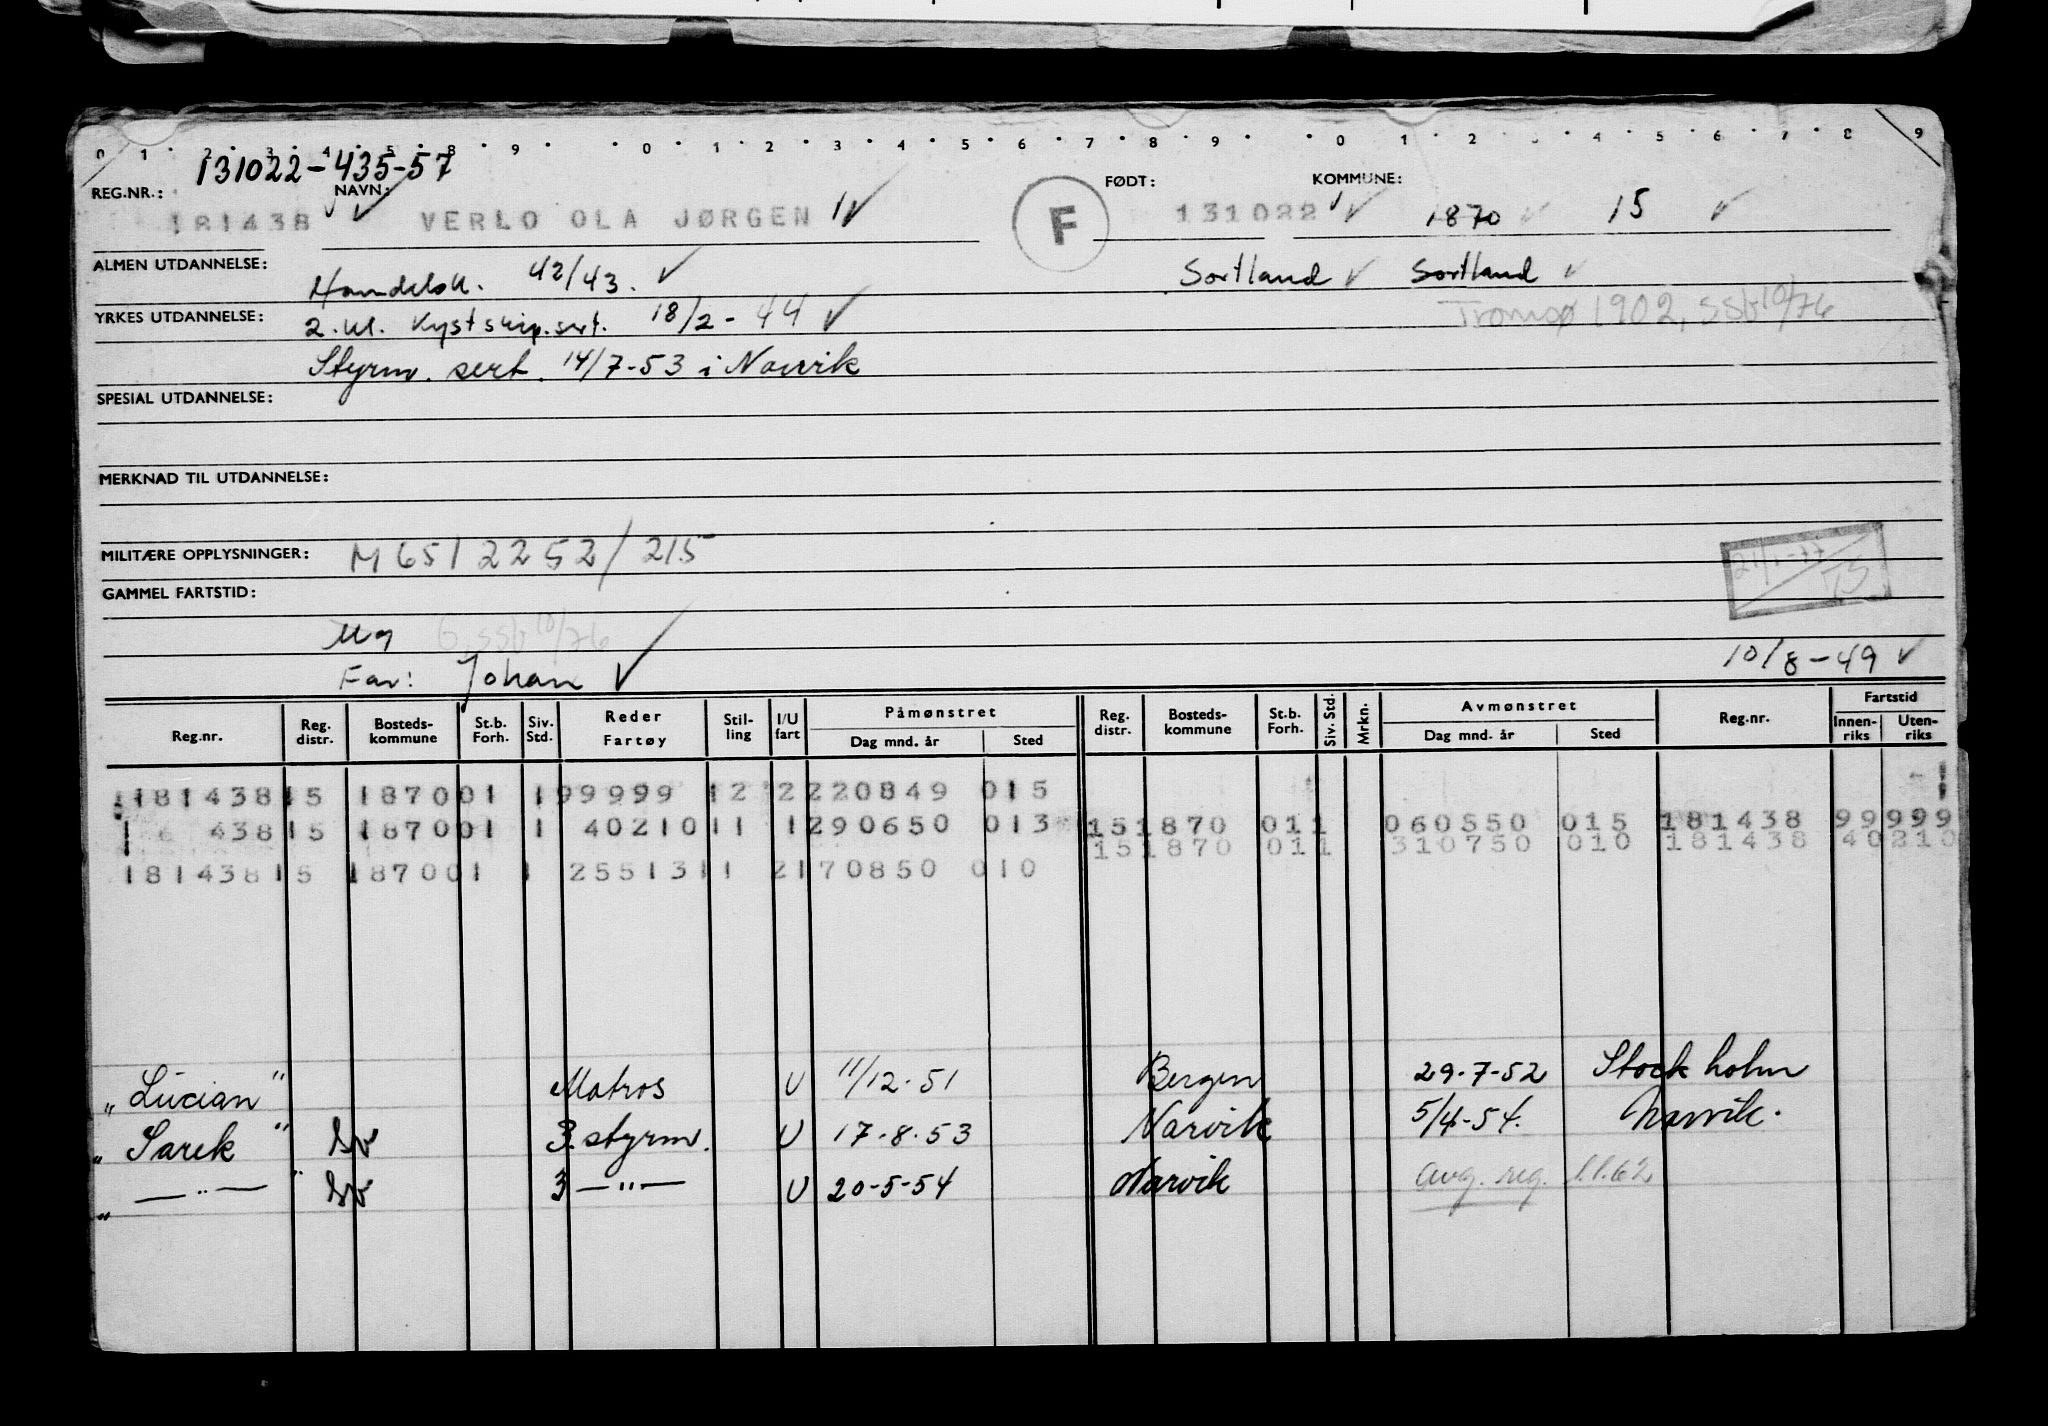 0 1 2 3 4 5 8 9 0 1 2 3 4 5 6 7 8 9 0 1 2 3 4 5 6 7 8 9
131022-435-57
REG.NR.: NAVN: FØDT: KOMMUNE:
181438 VERLO OLA JØRGEN F 131022 1870 15
ALMEN UTDANNELSE: Handelssk. 42/43. Sortland Sortland
YRKES UTDANNELSE: 2. kl. Kystskip.sert. 18/2-44 Tromsø 1902, SSB 10/76
Styrm. sert. 14/7-53 i Narvik
SPESIAL UTDANNELSE:
MERKNAD TIL UTDANNELSE:
MILITÆRE OPPLYSNINGER: M 6512252/215
21/1-77
GAMMEL FARTSTID:
Ug G, SSB 10/76
Far: Johan 10/8-49
Reg.nr. Reg. distr. Bosteds-kommune St.b. Forh. Siv. Std. Reder Fartøy Stil-ling I/U fart Påmønstret Dag mnd. år Sted Reg. distr. Bosteds-kommune St.b. Forh. Siv. Std. Mrkn. Avmønstret Dag mnd. år Sted Reg.nr. Fartstid Innen-riks Uten-riks
181438 15 1870 01 1 99999 12 2 220849 015
438 15 1870 01 1 40210 11 1 290650 013 15 1870 01 1 060550 015 181438 99999
15 1870 01 1 310750 010 181438 40210
181438 15 1870 01 1 25513 11 2 170850 010
"Lucian" Matros U 11/12-51 Bergen 29-7-52 Stockholm
"Sarek" 3. styrm. U 17-8-53 Narvik 5/4-54. Narvik.
" —"— " 3 —"— U 20-5-54 Narvik Avg. reg. 1.1.62